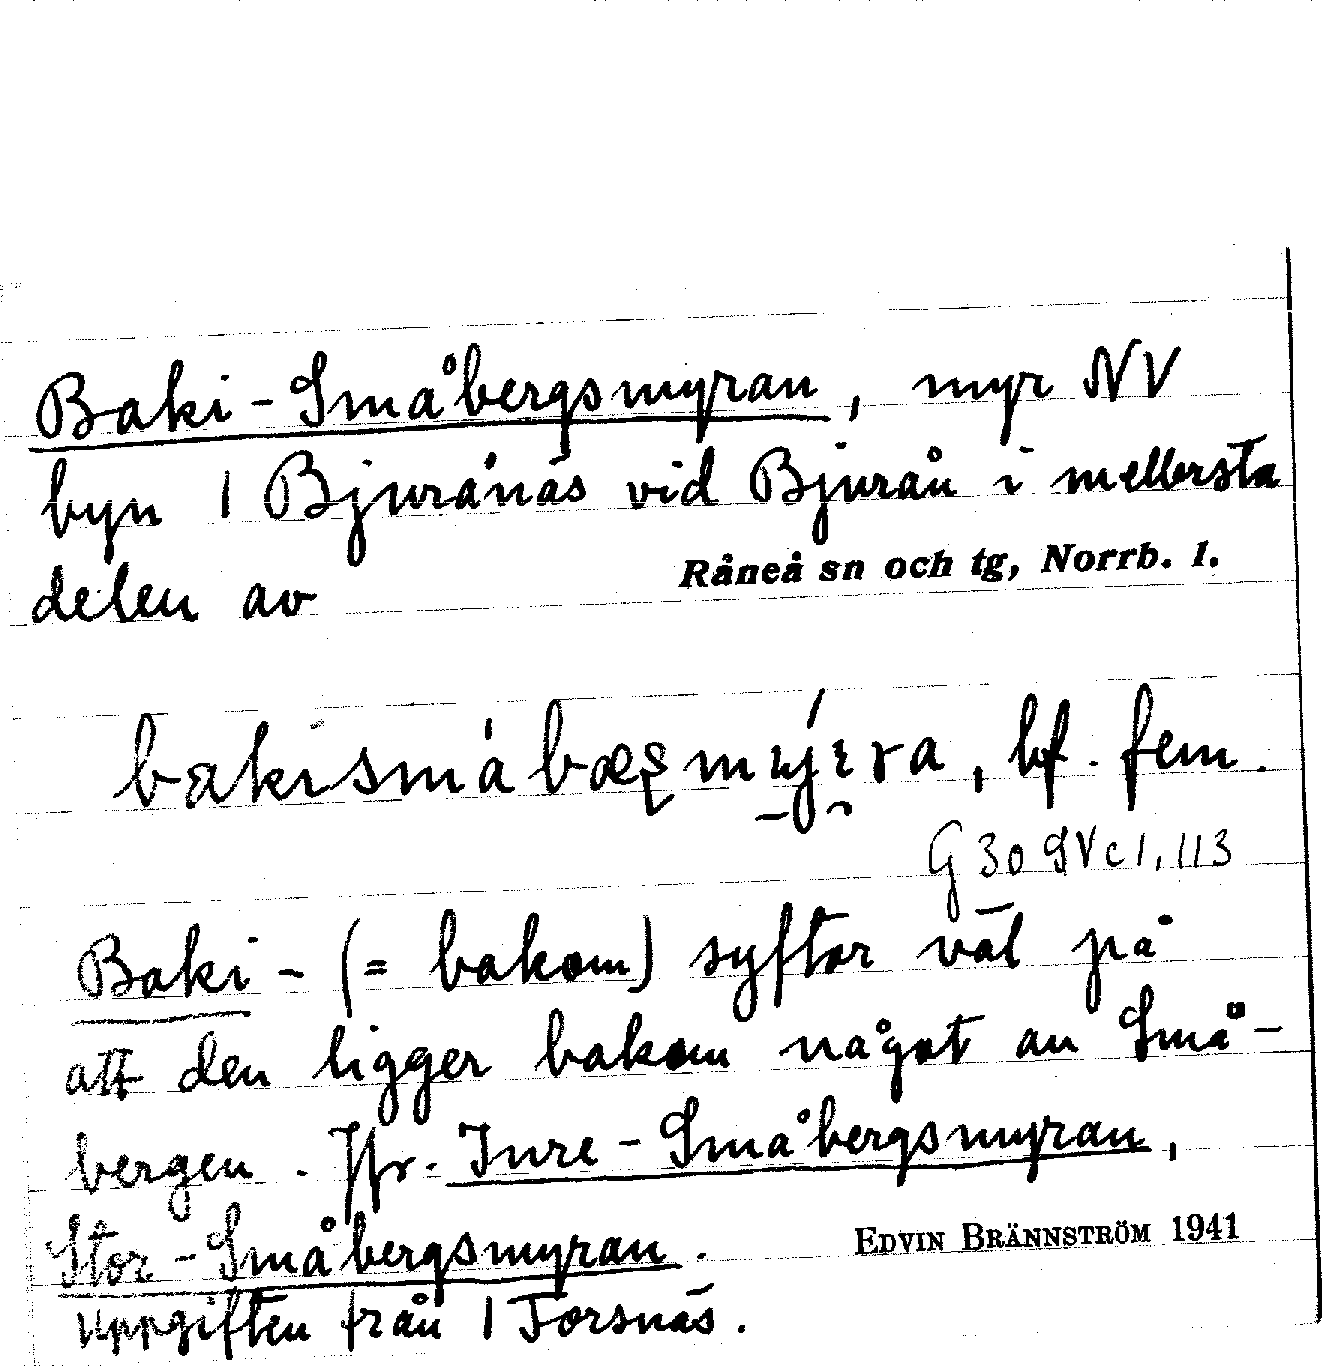 Baki-Småbergsmyran, myr NV
byn 1 Bjurånäs vid Bjurån i mellersta
delen av Råneå sn och tg, Norrb. l.
bf. fem.
G 30 SV c 1, 113
Baki- (= bakom) syftar väl på
att den ligger bakom något av Små-
bergen. Jfr. Inre-Småbergsmyran,
Stor-Småbergsmyran. EDVIN BRÄNNSTRÖM 1941
Uppgiften från 1 Torsnäs.